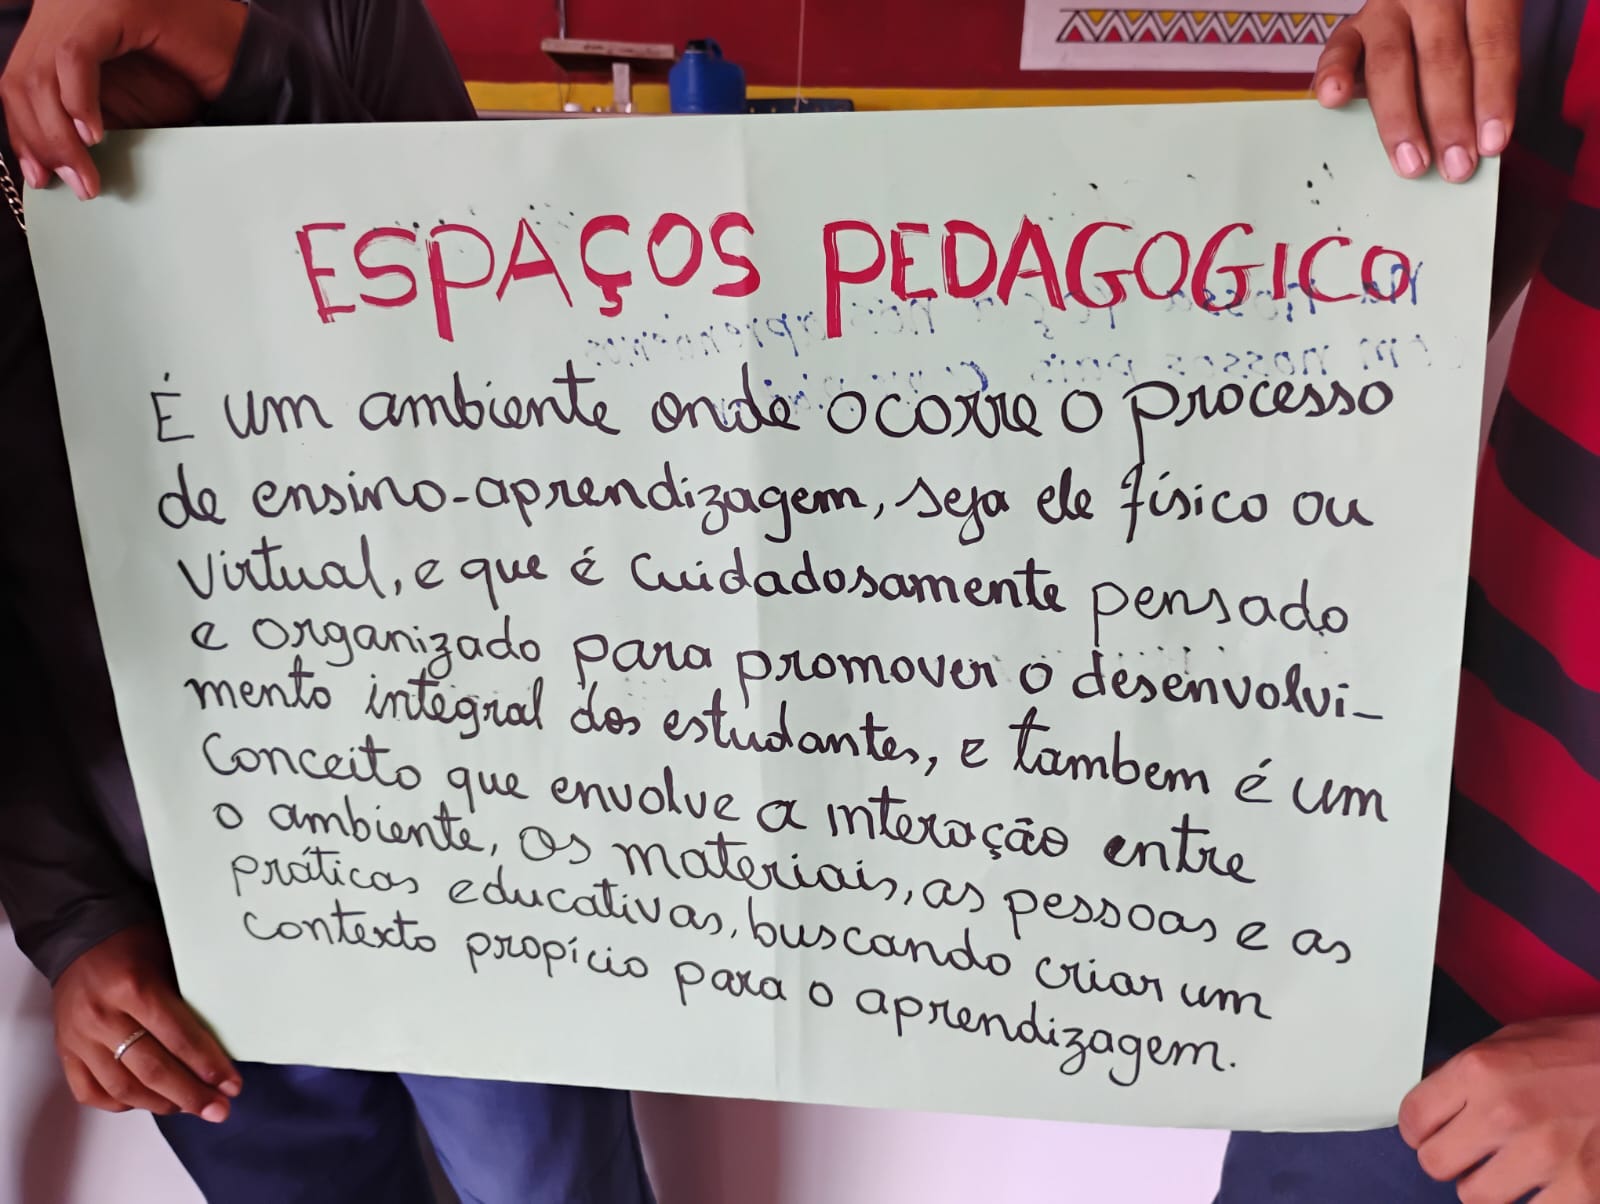 ESPAÇOS PEDAGOGICO
É um ambiente onde ocorre o processo
de ensino-aprendizagem, seja ele físico ou
virtual, e que é cuidadosamente pensado
e organizado para promover o desenvolvi-
mento integral dos estudantes, e tambem é um
conceito que envolve a interação entre
o ambiente, os materiais, as pessoas e as
práticas educativas, buscando criar um
contexto propício para o aprendizagem.